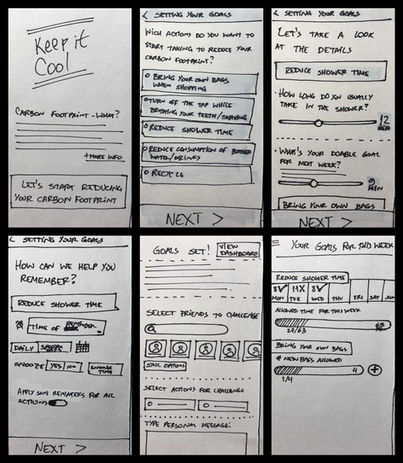 Keep it
Cool
CARBON FOOTPRINT - WHAT?
+MORE INFO
LET'S START REDUCING
YOUR CARBON FOOTPRINT
< SETTING YOUR GOALS
WICH ACTIONS DO YOU WANT TO
START TAKING TO REDUCE YOUR
CARBON FOOTPRINT?
BRING YOUR OWN BAGS
WHEN SHOPPING
TURN OFF THE TAP WHILE
BRUSHING YOUR TEETH/SHAVING
REDUCE SHOWER TIME
REDUCE CONSUMPTION OF BOTTLED
WATER/DRINKS
RECYCLE
NEXT >
< SETTING YOUR GOALS
LET'S TAKE A LOOK
AT THE DETAILS
REDUCE SHOWER TIME
• HOW LONG DO YOU USUALLY
TAKE IN THE SHOWER?
12
MIN
• WHAT'S YOUR DOABLE GOAL
FOR NEXT WEEK?
9
MIN
BRING YOUR OWN BAGS
NEXT >
< SETTING YOUR GOALS
HOW CAN WE HELP YOU
REMEMBER?
REDUCE SHOWER TIME
TIME OF
DAILY
SNOOZE YES NO
APPLY SAME REMINDERS FOR ALL
ACTIONS
NEXT >
GOALS SET!
VIEW
DASHBOARD
SELECT FRIENDS TO CHALLENGE
SELECT ACTIONS FOR CHALLENGE
TYPE PERSONAL MESSAGE:
YOUR GOALS FOR THIS WEEK
REDUCE SHOWER TIME
8 11X 8
MON TUE WED THU FRI SAT
ALLOWED TIME FOR THIS WEEK
27/63
BRING YOUR OWN BAGS
# NEW BAGS ALLOWED
4 +
1/4